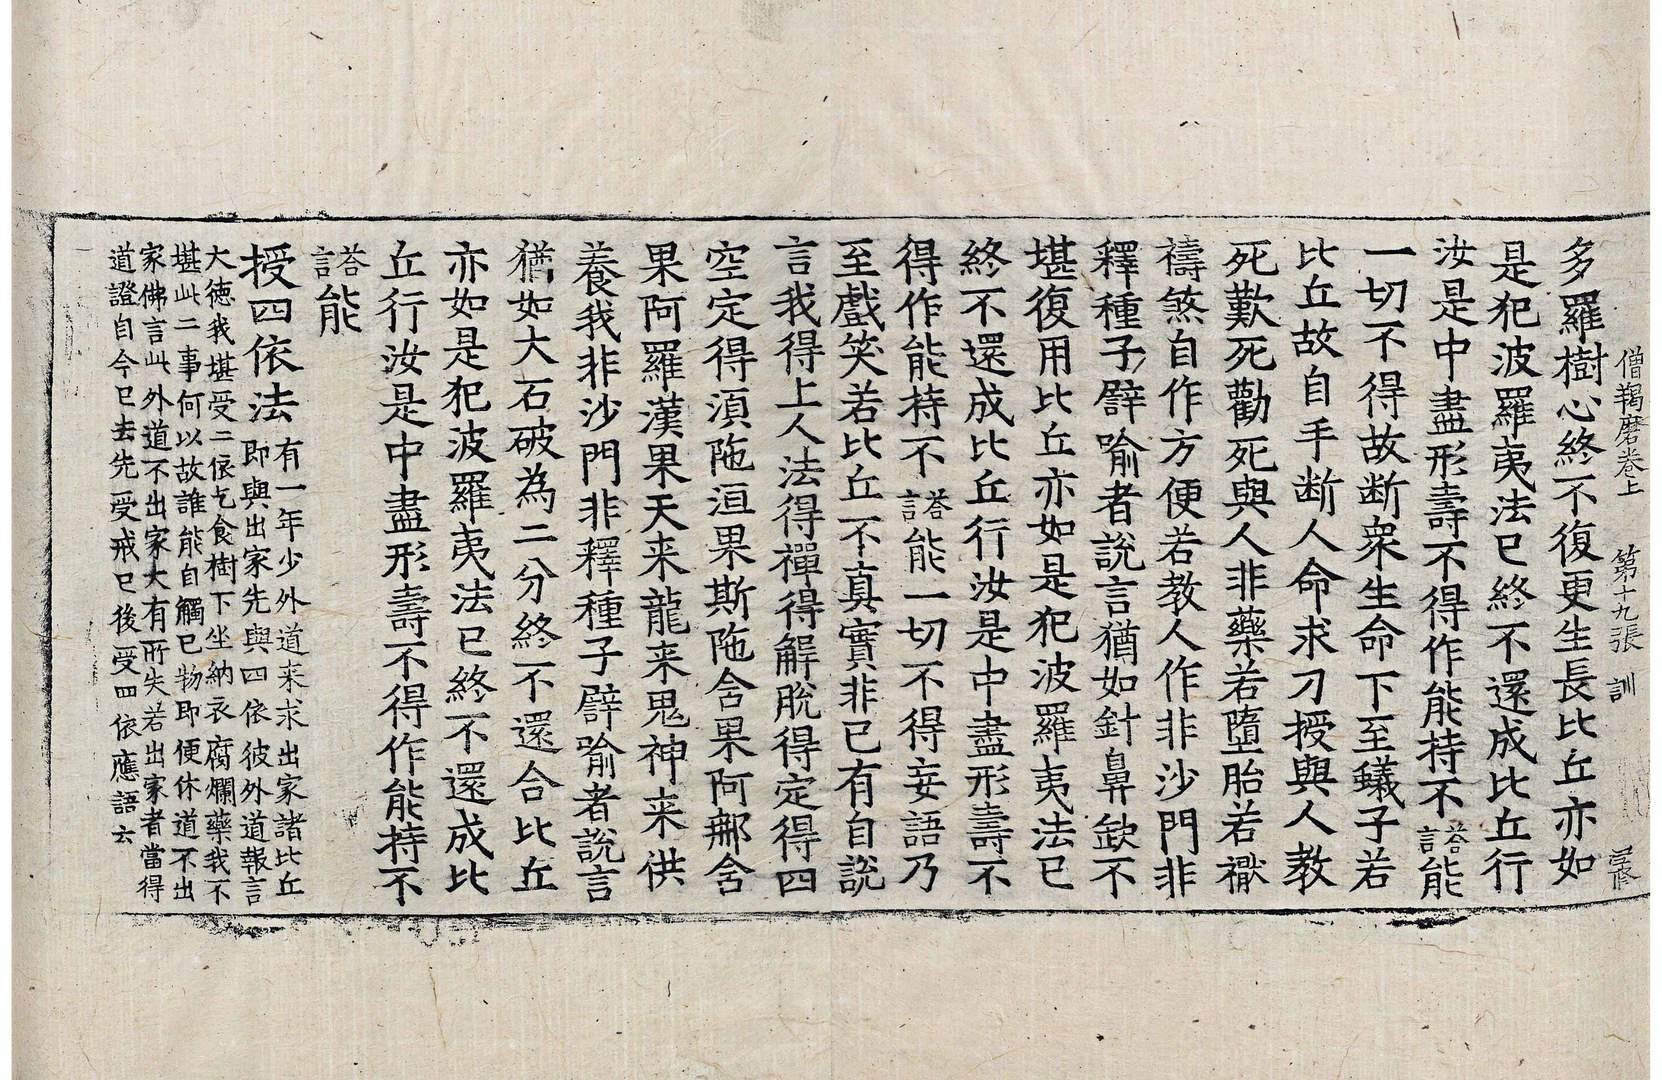 僧羯磨卷上 第十九張 訓
多羅樹心終不復更生長比丘亦如
是犯波羅夷法已終不還成比丘行
汝是中盡形壽不得作能持不答言能
一切不得故断衆生命下至蟻子若
比丘故自手断人命求刀授與人教
死歎死勸死與人非藥若墮胎若禱
禱煞自作方便若教人作非沙門非
釋種子譬喻者說言猶如針鼻缺不
堪復用比丘亦如是犯波羅夷法已
終不還成比丘行汝是中盡形壽不
得作能持不答言能一切不得妄語乃
至戲笑若比丘不真實非已有自說
言我得上人法得禪得解脫得定得四
空定得湏陁洹果斯陁含果阿那含
果阿羅漢果天来龍来鬼神来供
養我非沙門非釋種子譬喻者說言
猶如大石破為二分終不還合比丘
亦如是犯波羅夷法已終不還成比
丘行汝是中盡形壽不得作能持不
答言能
授四依法有一年少外道来求出家諸比丘
即與出家先與四依彼外道報言
大德我堪受二依乞食樹下坐納衣腐爛藥我不
堪此二事何以故誰能自觸已物即便休道不出
家佛言此外道不出家大有所失若出家者當得
道證自今已去先受戒已後受四依應語言